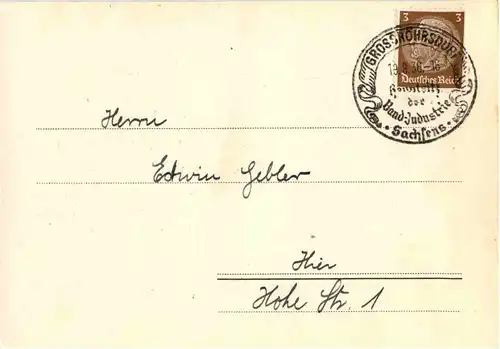 3 3
Deutsches Reich
GROSSRÖHRSDORF
der
Band-Industrie
Sachsens
Herrn
Edwin Gebler
Hier
Hohe Str. 1